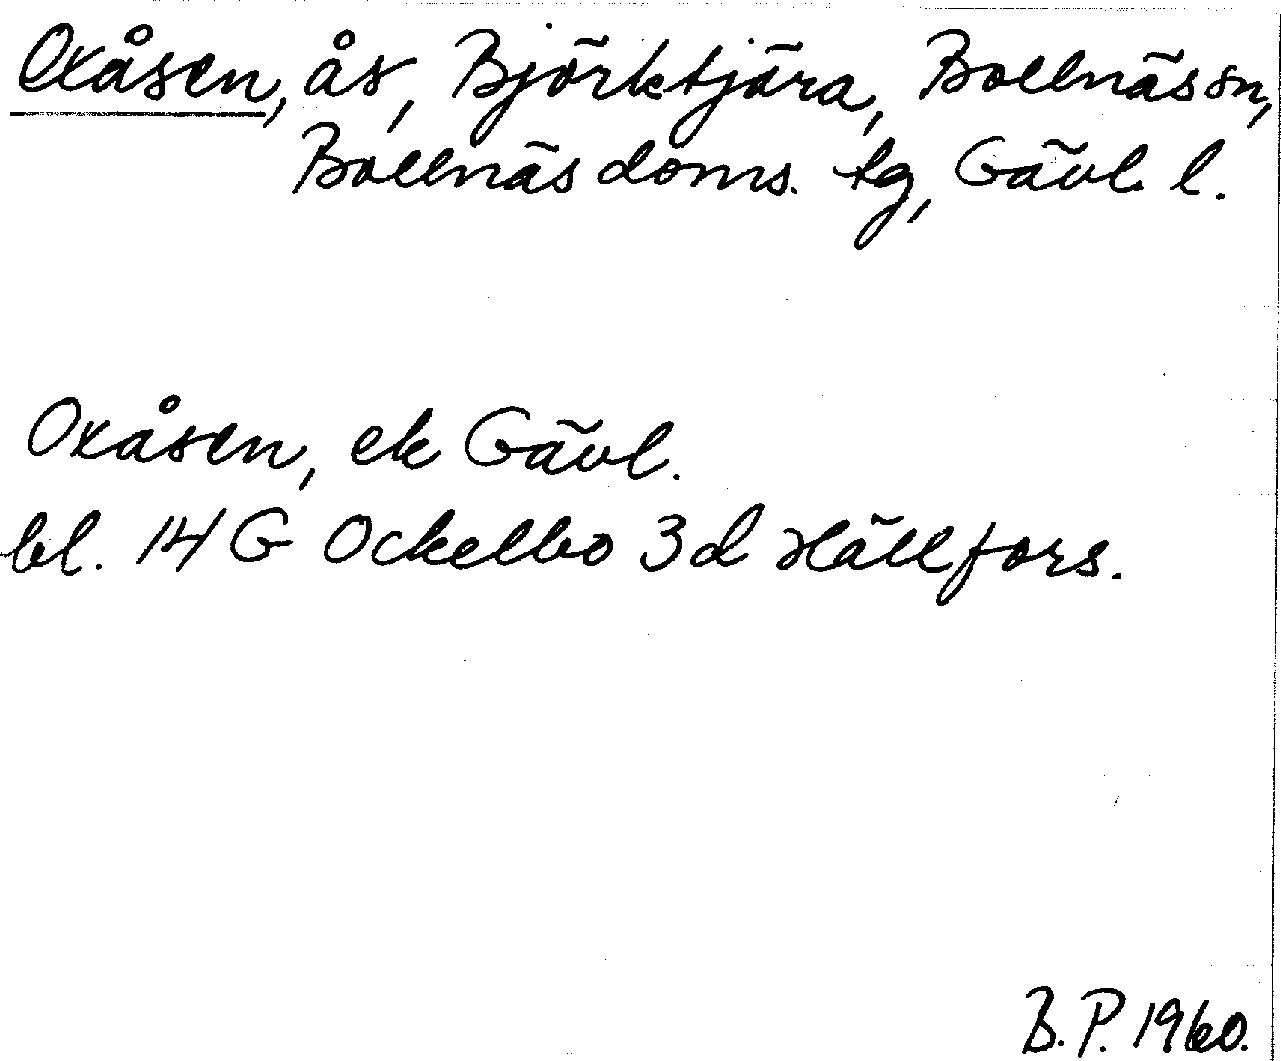 Oxåsen, ås, Björktjära, Bollnäs sn,
Bollnäs doms. tg, Gävl. l.
Oxåsen, ek Gävl.
bl. 14 G Ockelbo 3d Hällfors.
B.P. 1960.